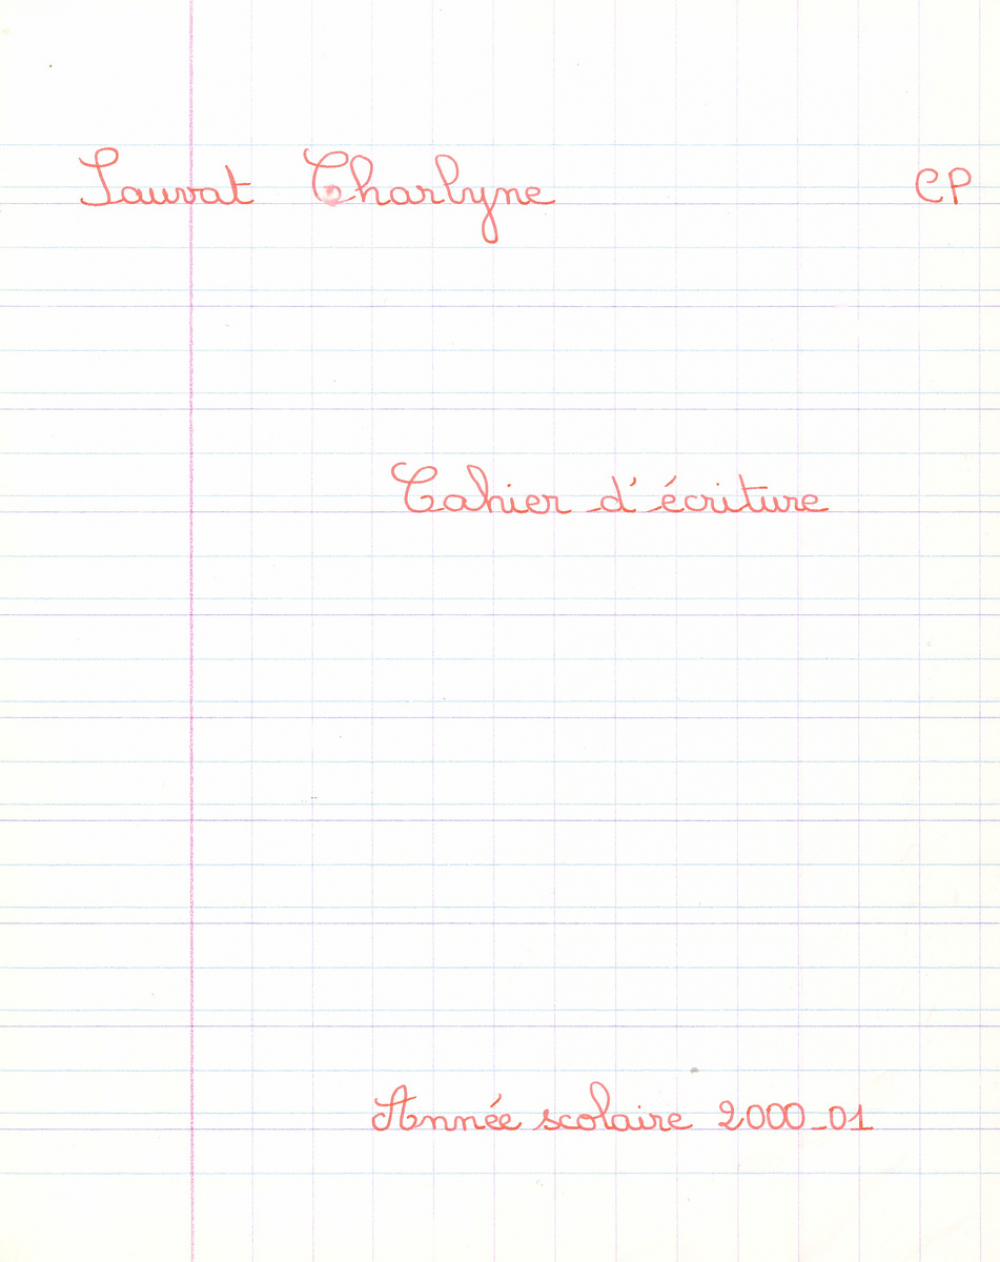 Lauvat Charlyne CP
Cahier d'écriture
Année scolaire 2000_01